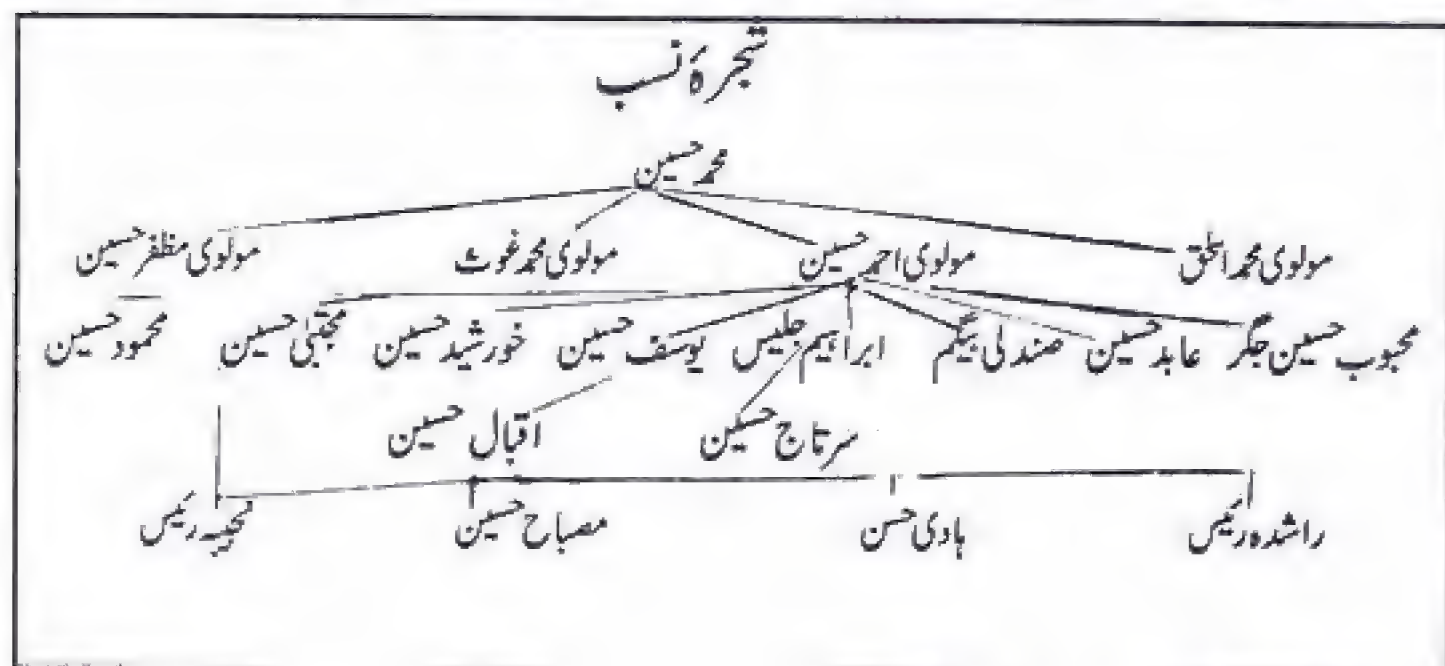 شجرۂ نسب
محمد حسین
مولوی محمد اسحٰق مولوی احمد حسین مولوی محمد غوث مولوی مظفر حسین
محبوب حسین جگر عابد حسین صندلی بیگم ابراہیم جلیس یوسف حسین خورشید حسین مجتبیٰ حسین محمود حسین
سرتاج حسین اقبال حسین
راشدہ رئیس ہادی حسن مصباح حسین نجیبہ رئیس